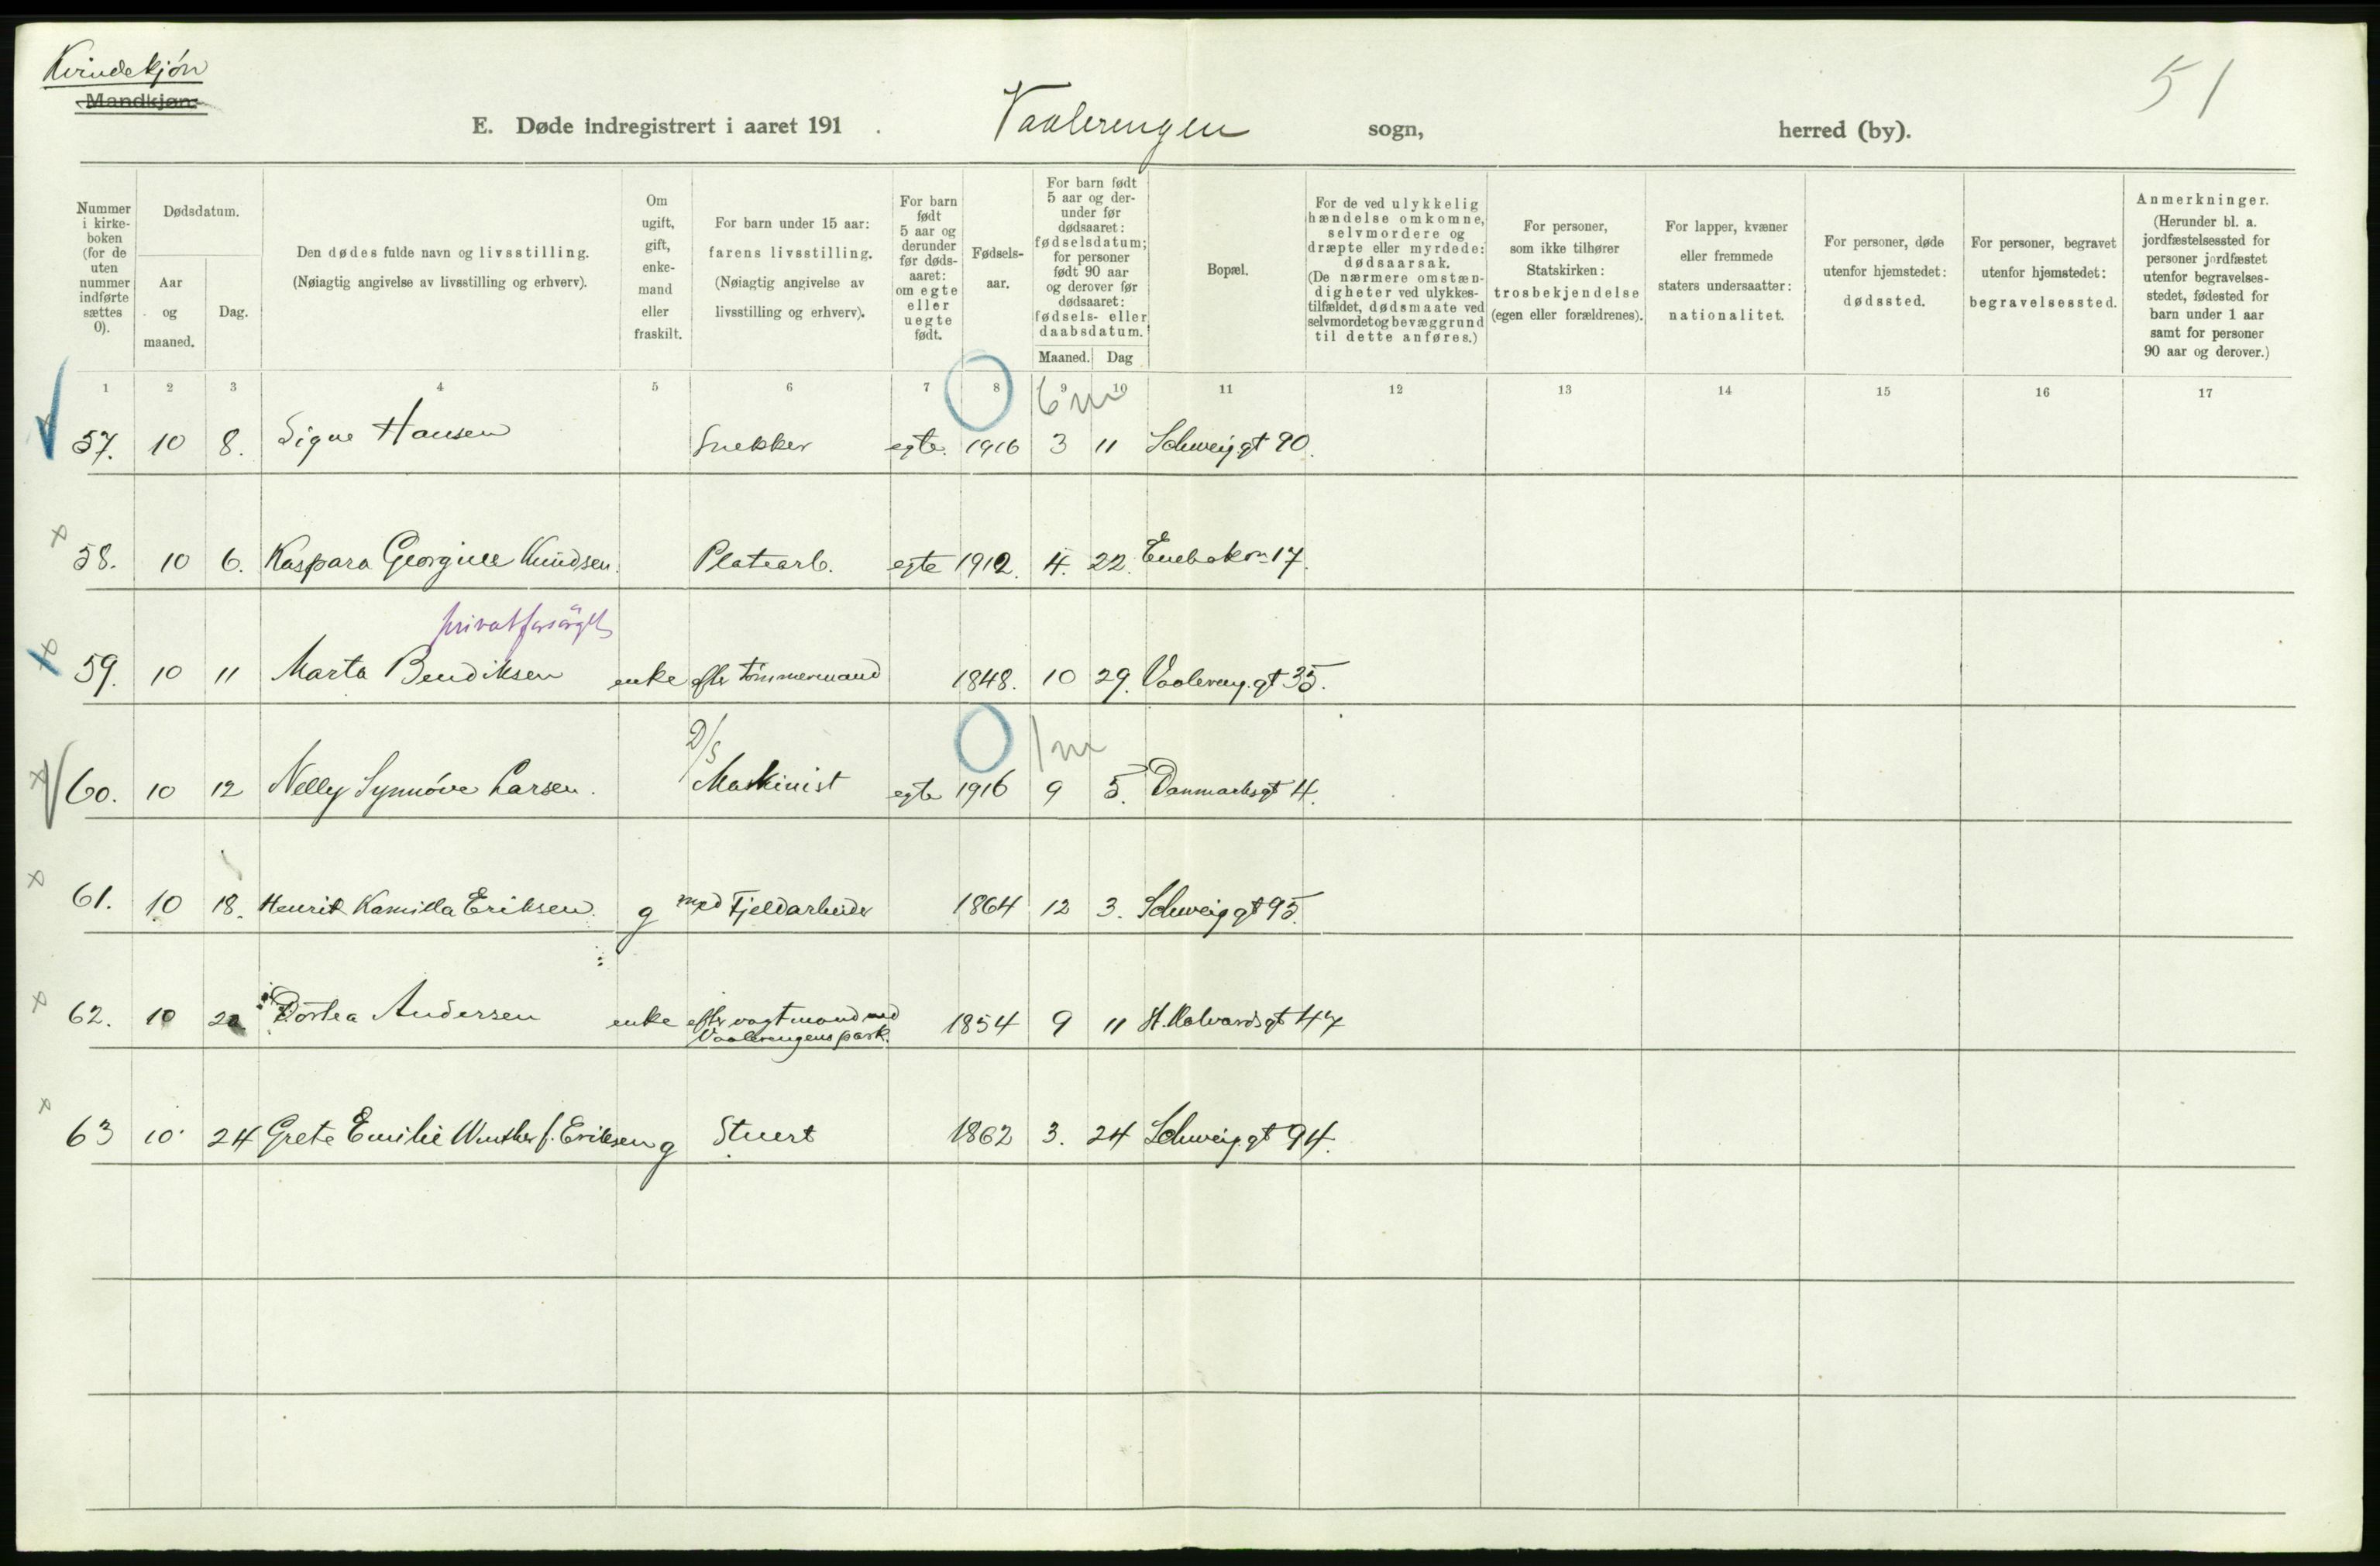 Kvindekjön
Mandkjøn.
51
E. Døde indregistrert i aaret 191 . Vaalerengen sogn, herred (by).
Nummer i kirke-boken (for de uten nummer indførte sættes 0).
Dødsdatum.
Aar og maaned.
Dag.
Den dødes fulde navn og livsstilling.
(Nøiagtig angivelse av livsstilling og erhverv).
Om ugift, gift, enke-mand eller fraskilt.
For barn under 15 aar: farens livsstilling.
(Nøiagtig angivelse av livsstilling og erhverv).
For barn født 5 aar og derunder før døds-aaret: om egte eller uegte født.
Fødsels-aar.
For barn født 5 aar og der-under før dødsaaret: fødselsdatum; for personer født 90 aar og derover før dødsaaret: fødsels- eller daabsdatum.
Maaned. Dag
Bopæl.
For de ved ulykkelig hændelse omkomne, selvmordere og dræpte eller myrdede: dødsaarsak.
(De nærmere omstæn-digheter ved ulykkes-tilfældet, dødsmaate ved selvmordet og bevæggrund til dette anføres.)
For personer, som ikke tilhører Statskirken: trosbekjendelse (egen eller forældrenes).
For lapper, kvæner eller fremmede staters undersaatter: nationalitet.
For personer, døde utenfor hjemstedet: dødssted.
For personer, begravet utenfor hjemstedet: begravelsessted.
Anmerkninger.
(Herunder bl. a. jordfæstelsessted for personer jordfæstet utenfor begravelses-stedet, fødested for barn under 1 aar samt for personer 90 aar og derover.)
1 2 3 4 5 6 7 8 9 10 11 12 13 14 15 16 17
0 6 m
57. 10 8. Signe Hansen Snekker egte. 1916 3 11 Schweig.gt 90.
58. 10 6. Kaspara Georgine Knudsen. Platearb. egte 1912. 4. 22. Enebakv. 17.
privat forsörget
59. 10 11 Marta Bendiksen enke efter tömmermand 1848. 10 29. Vaalereng.gt 35.
0 1 m
60. 10 12 Nelly Synnöve Larsen. D/S Maskinist egte 1916 9 5. Danmarksgt 4.
61. 10 18. Henrik Kamilla Eriksen. g med Fjeldarbeider 1864 12 3. Schweig gt 95.
62. 10 20 Dortea Andersen enke efter vagtmand ved
Vaalerengens park. 1854 9 11 St. Halvardsgt 47
63 10 24 Grete Emilie Winther f. Eriksen g Stuert 1862 3. 24 Schweig.gt 94.